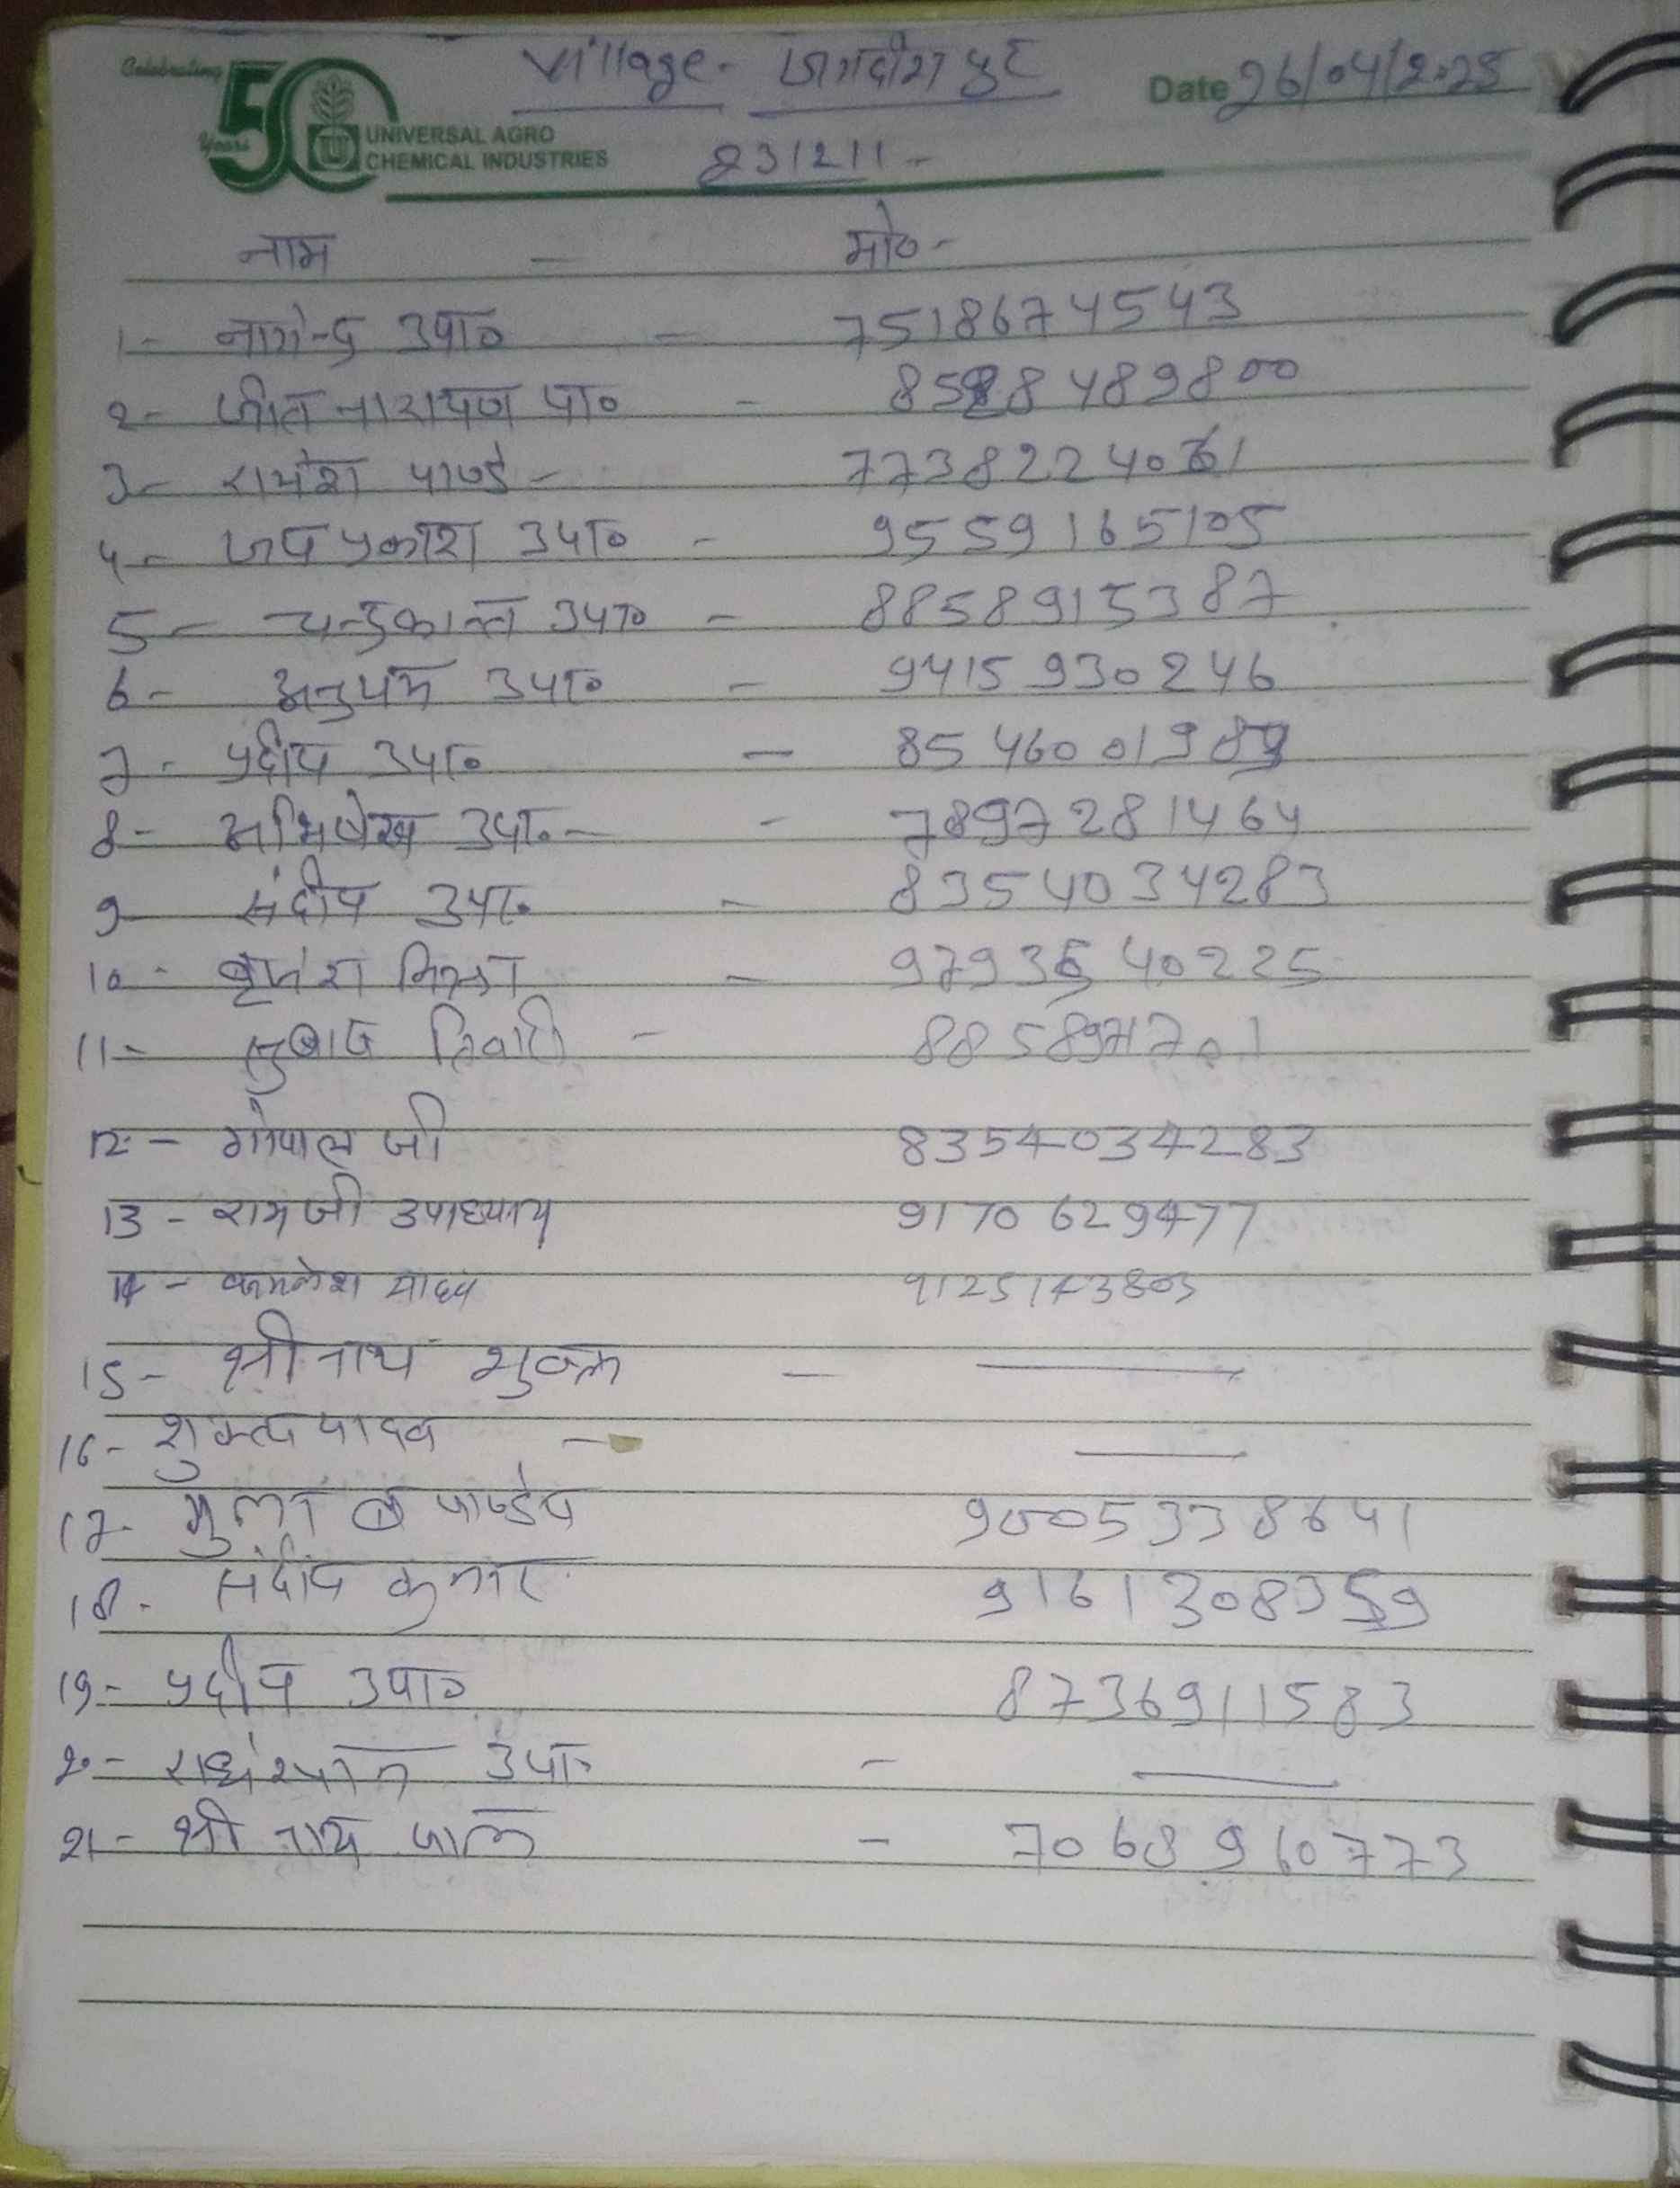 Celebrating 50 Years
UNIVERSAL AGRO CHEMICAL INDUSTRIES
Village - जगदीश पुर
Date 26/04/2025
231211 -
नाम - मो० -
1- नागेन्द्र उपा० - 7518674543
2- जीत नारायण पा० - 8528489800
3- रामेश पाण्डे - 7738224061
4- जय प्रकाश उपा० - 9559165105
5- चन्द्रकान्त उपा० - 8858915387
6- अनुपम उपा० - 9415930246
7- प्रदीप उपा० - 8546001989
8- अभिषेख उपा० - 7897281464
9- संदीप उपा० - 8354034283
10- बृजेश मिश्रा - 9793640225
11- तिवारी - 8858971701
12- गोपाल जी 8354034283
13- रामजी उपाध्याय 9170629477
14- कमलेश यादव 9125143803
15- श्री नाथ शुक्ल - ———
16- यादव - ———
17- मुन्ना पाण्डेय 9005338641
18- संदीप कुमार 9161308359
19- प्रदीप उपा० 8736911583
20- राधेश्याम उपा० - ———
21- श्री नाथ पाल - 7068960773